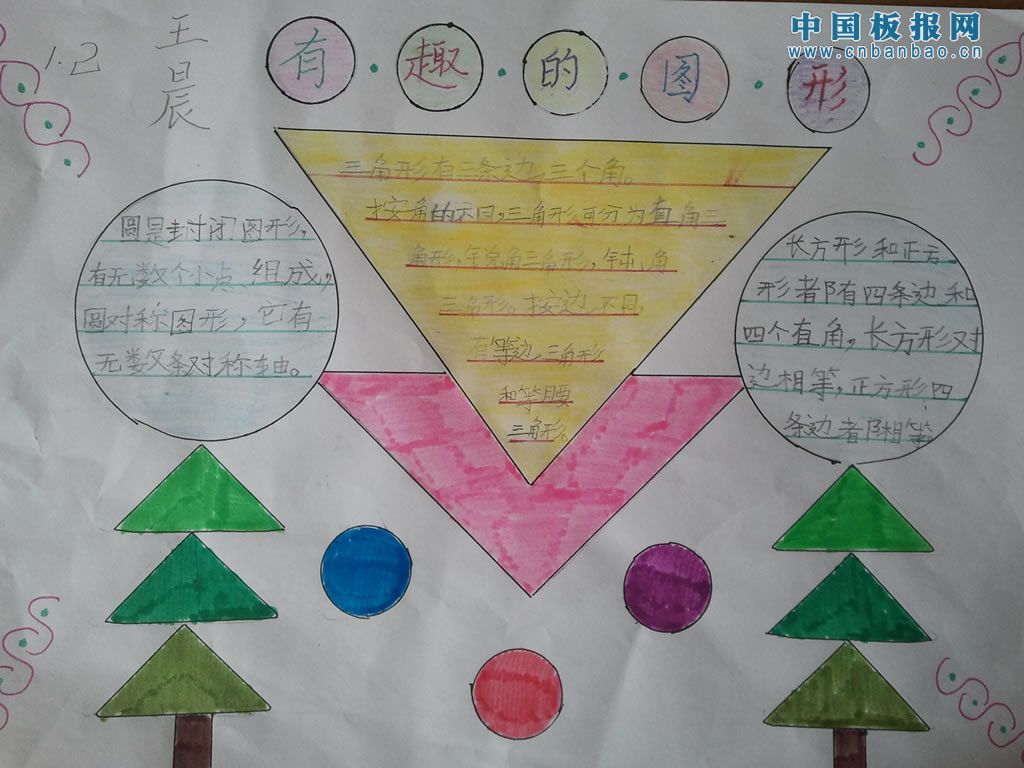 中国板报网
www.cnbanbao.cn
1.2
王晨
有·趣·的·图·形
三角形有三条边,三个角。
按角的不同,三角形可分为直角三
角形,锐角三角形,钝角
三角形。按边不同,
有等边三角形
和等腰
三角形。
圆是封闭图形,
有无数个小点组成,
圆对称图形,它有
无数条对称轴。
长方形和正方
形都有四条边和
四个直角,长方形对
边相等,正方形四
条边都相等。